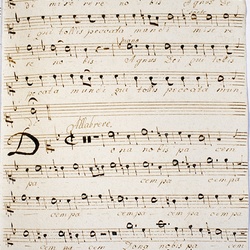 di mise re re no bis Agnus De i
qui tollis peccata mundi mise re
re no bis Agnus Dei qui tol lis
peccata mundi qui tollis peccata mun
di
Allabreve.
Dona nobis pa cem pa
cem pa cem pa
cem pa cem pa cem pa
cem pa cem Dona nobis pa